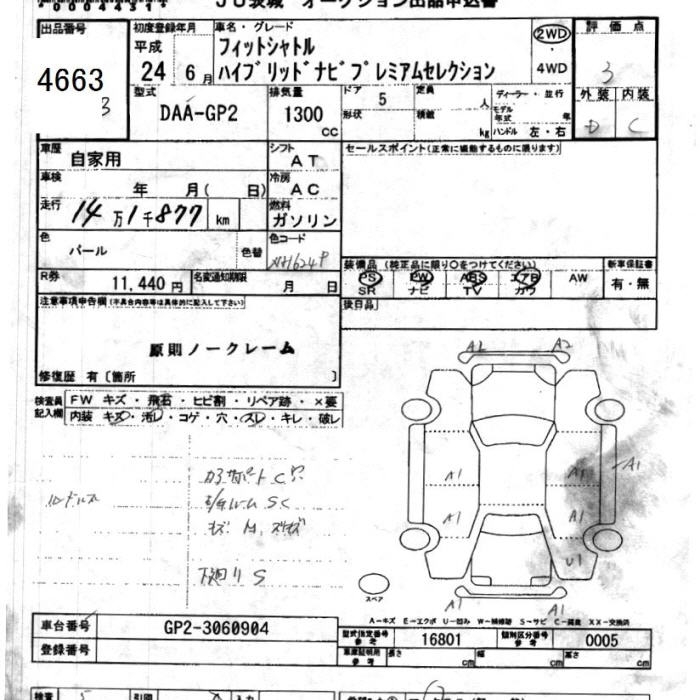 00044344
JU茨城 オークション出品申込書
出品番号 初度登録年月 車名・グレード 評価点
4663 平成 24 6月 フィットシャトル 2WD 3
3 ハイブリッドナビプレミアムセレクション 4WD
型式 DAA-GP2 排気量 1300 CC ドア 5 定員 人 ディーラー・並行 外装 内装
形状 積載 kg モデル年式 年 ハンドル 左・右 D C
車歴 自家用 シフト AT セールスポイント(正常に機能するものに限ります)
車検 年 月( 日) 冷房 AC
走行 14万1千877 km 燃料 ガソリン
色 パール 色替 色コード NH624P 装備品 (純正品に限り○をつけてください) 新車保証書
PS PW ABS エアB AW 有・無
SR ナビ TV カワ
R券 11,440円 名変通知期限 月 日
後日品
注意事項申告欄(不具合内容等は具体的に記入して下さい)
原則ノークレーム
修復歴 有〔箇所 〕
検査員記入欄 FW キズ・飛石・ヒビ割・リペア跡・×要
内装 キズ・汚レ・コゲ・穴・スレ・キレ・破レ
A2 A2
A1 A1 A1
A1 A1
U1
A1 A1
下廻りS
スペア
A-キズ E-エクボ U-凹み W-補修跡 S-サビ C-腐食 XX-交換済
車台番号 GP2-3060904 型式指定番号 参考 16801 類別区分番号 参考 0005
登録番号 車庫証明用 参考 長さ cm 幅 cm 高さ cm
検査 5 引回 入力